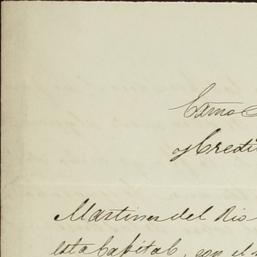 Exmo
y Credi
Martinez del Rio
esta Capital, con el